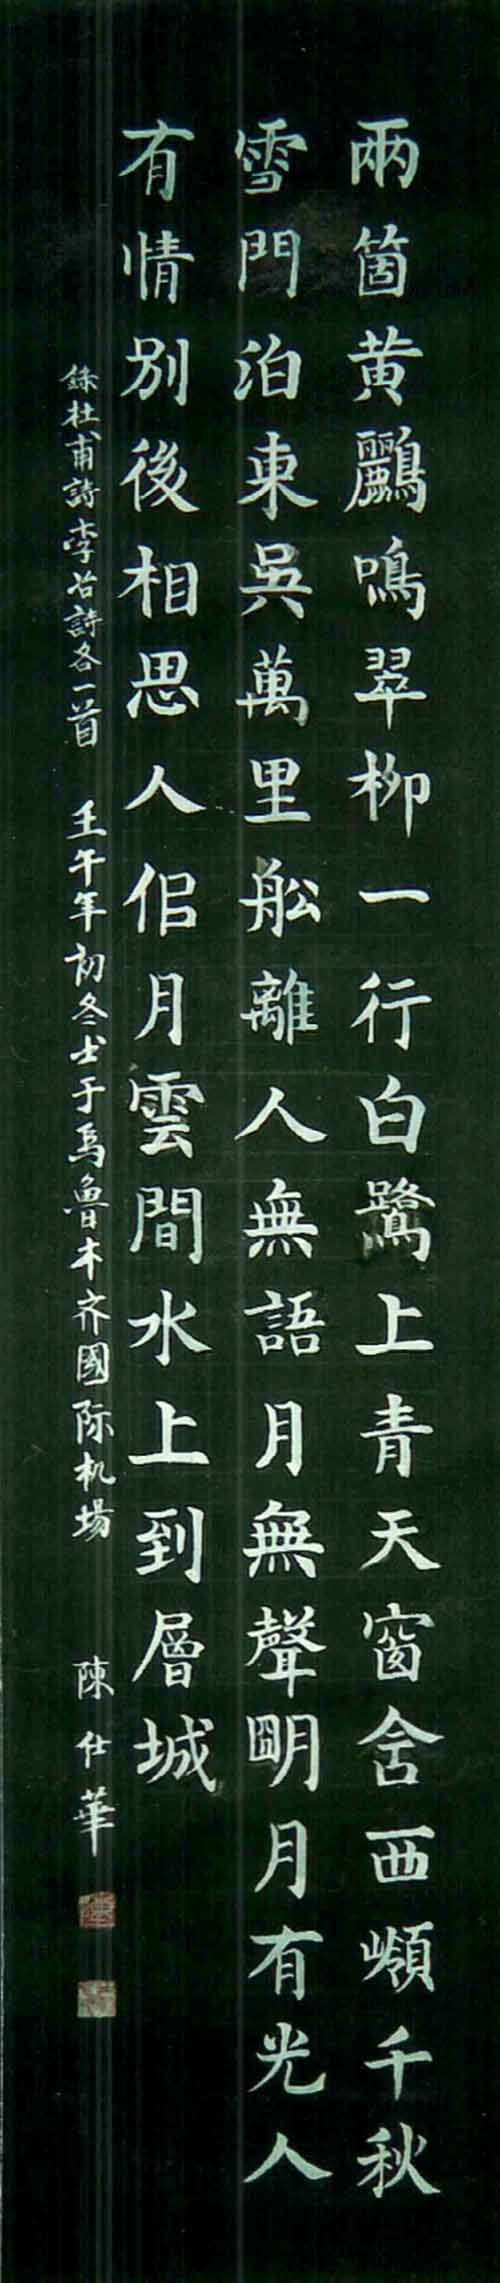 兩箇黃鸝鳴翠柳一行白鷺上青天窗含西嶺千秋
雪門泊東吳萬里船離人無語月無聲明月有光人
有情別後相思人佀月雲間水上到層城
錄杜甫詩李冶詩各一首 壬午年初冬书于烏魯木齐國际机场 陳仕華